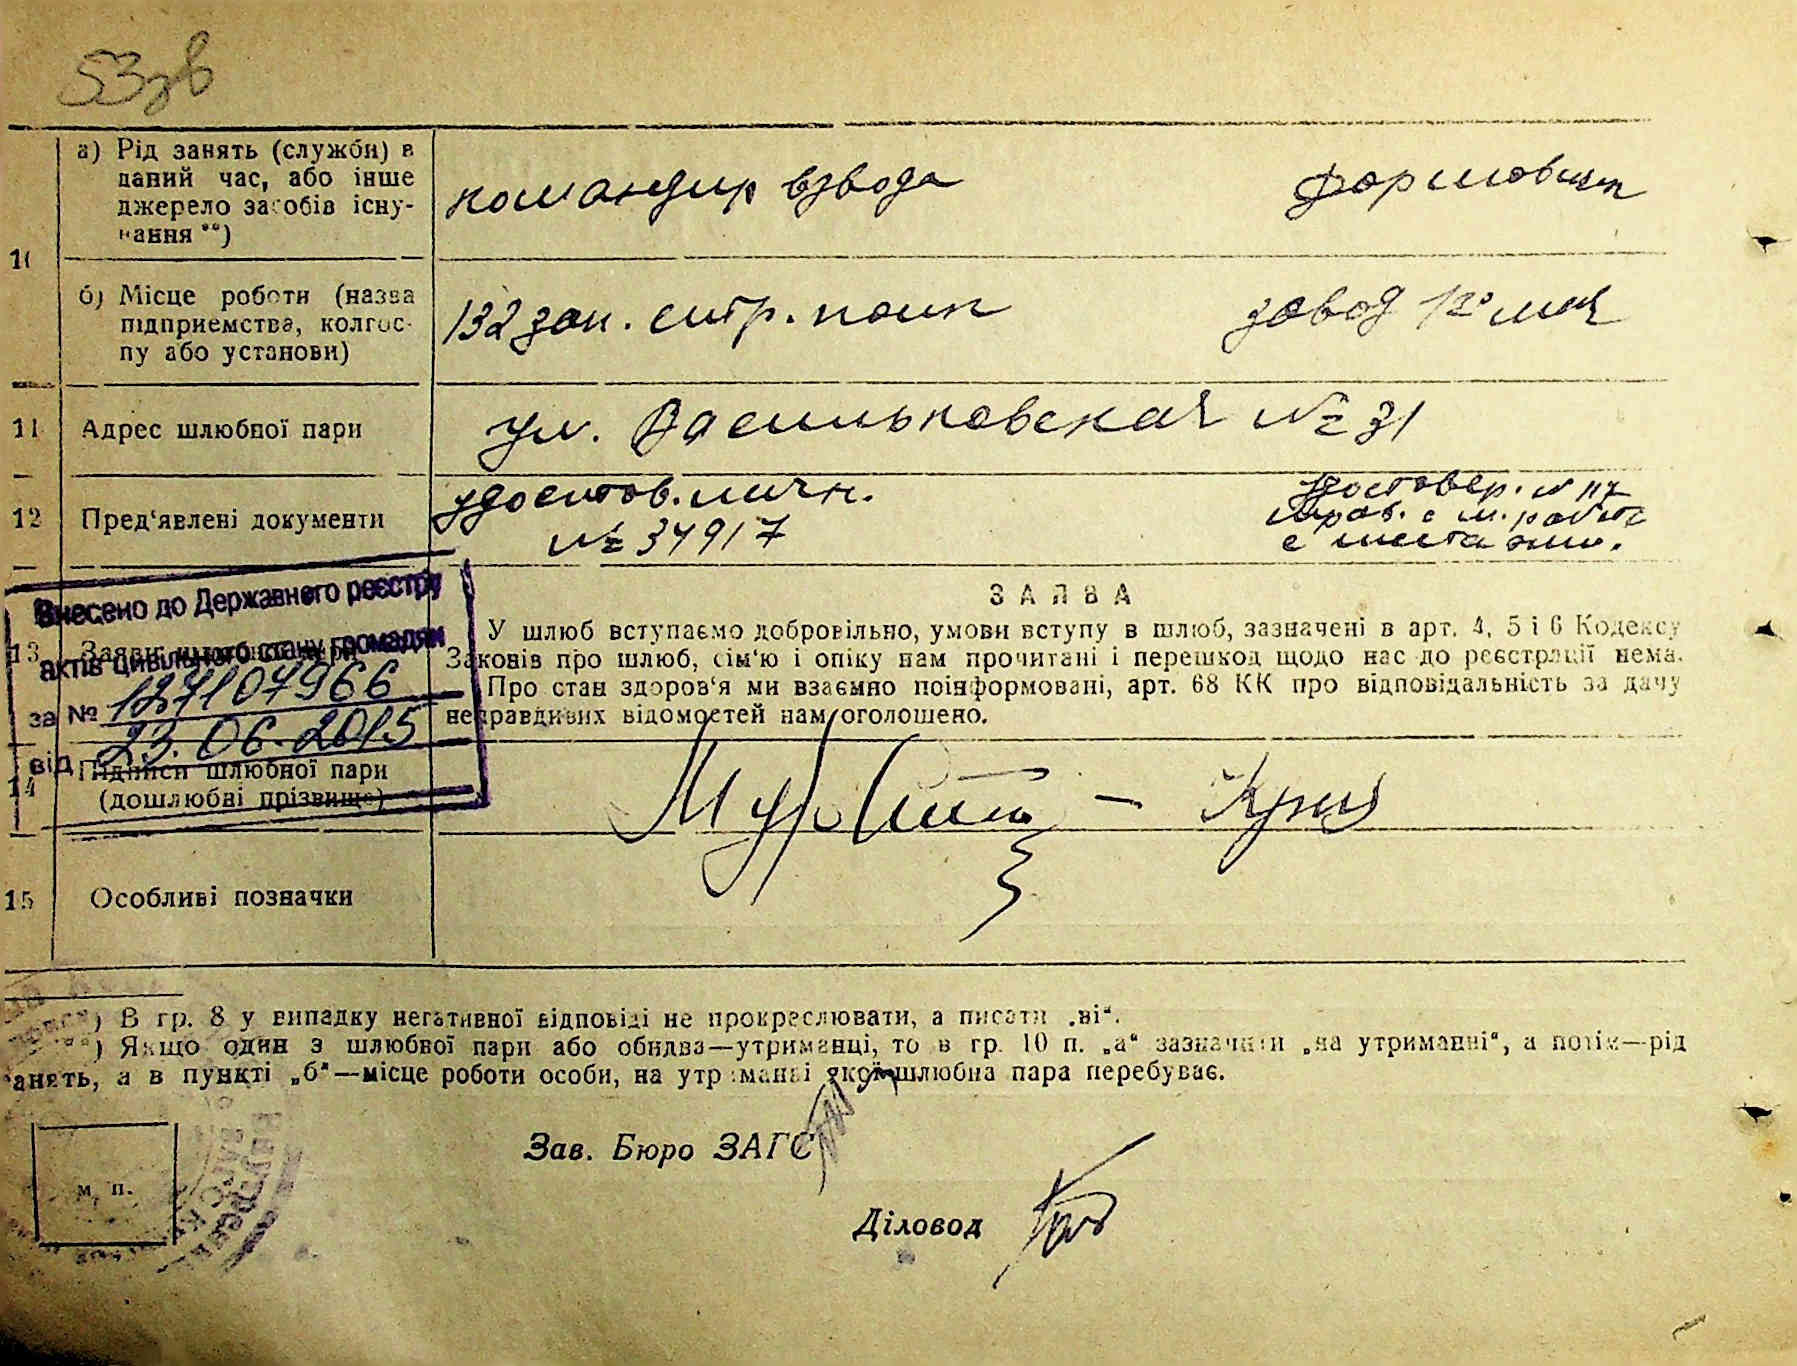 53зв
а) Рід занять (служби) в
даний час, або інше
джерело засобів існу-
вання **)
командир взвода
формовщик
10
б) Місце роботи (назва
підприємства, колгос-
пу або установи)
132 зап. стр. полк
завод 12
11 Адрес шлюбної пари
ул. Васильковская № 31
12 Пред‘явлені документи
удостов. личн.
№ 34917
удостовер. № 117
справ. с м. работ
с места жит.
Внесено до Державного реєстру
актів цивільного стану громадян
за № 127107966
від 23.06.2015
13
ЗАЯВА
У шлюб вступаємо добровільно, умови вступу в шлюб, зазначені в арт. 4, 5 і 6 Кодексу
Законів про шлюб, сім‘ю і опіку нам прочитані і перешкод щодо нас до реєстрації нема.
Про стан здоров‘я ми взаємно поінформовані, арт. 68 КК про відповідальність за дачу
неправдивих відомостей нам оголошено.
14 Підписи шлюбної пари
(дошлюбні прізвища)
15 Особливі позначки
*) В гр. 8 у випадку негативної відповіді не прокреслювати, а писати „ні“.
**) Якщо один з шлюбної пари або обидва—утриманці, то в гр. 10 п. „а“ зазначати „на утриманні“, а потім—рід
занять, а в пункті „б“—місце роботи особи, на утриманні якої шлюбна пара перебуває.
Зав. Бюро ЗАГС
м. п.
Діловод